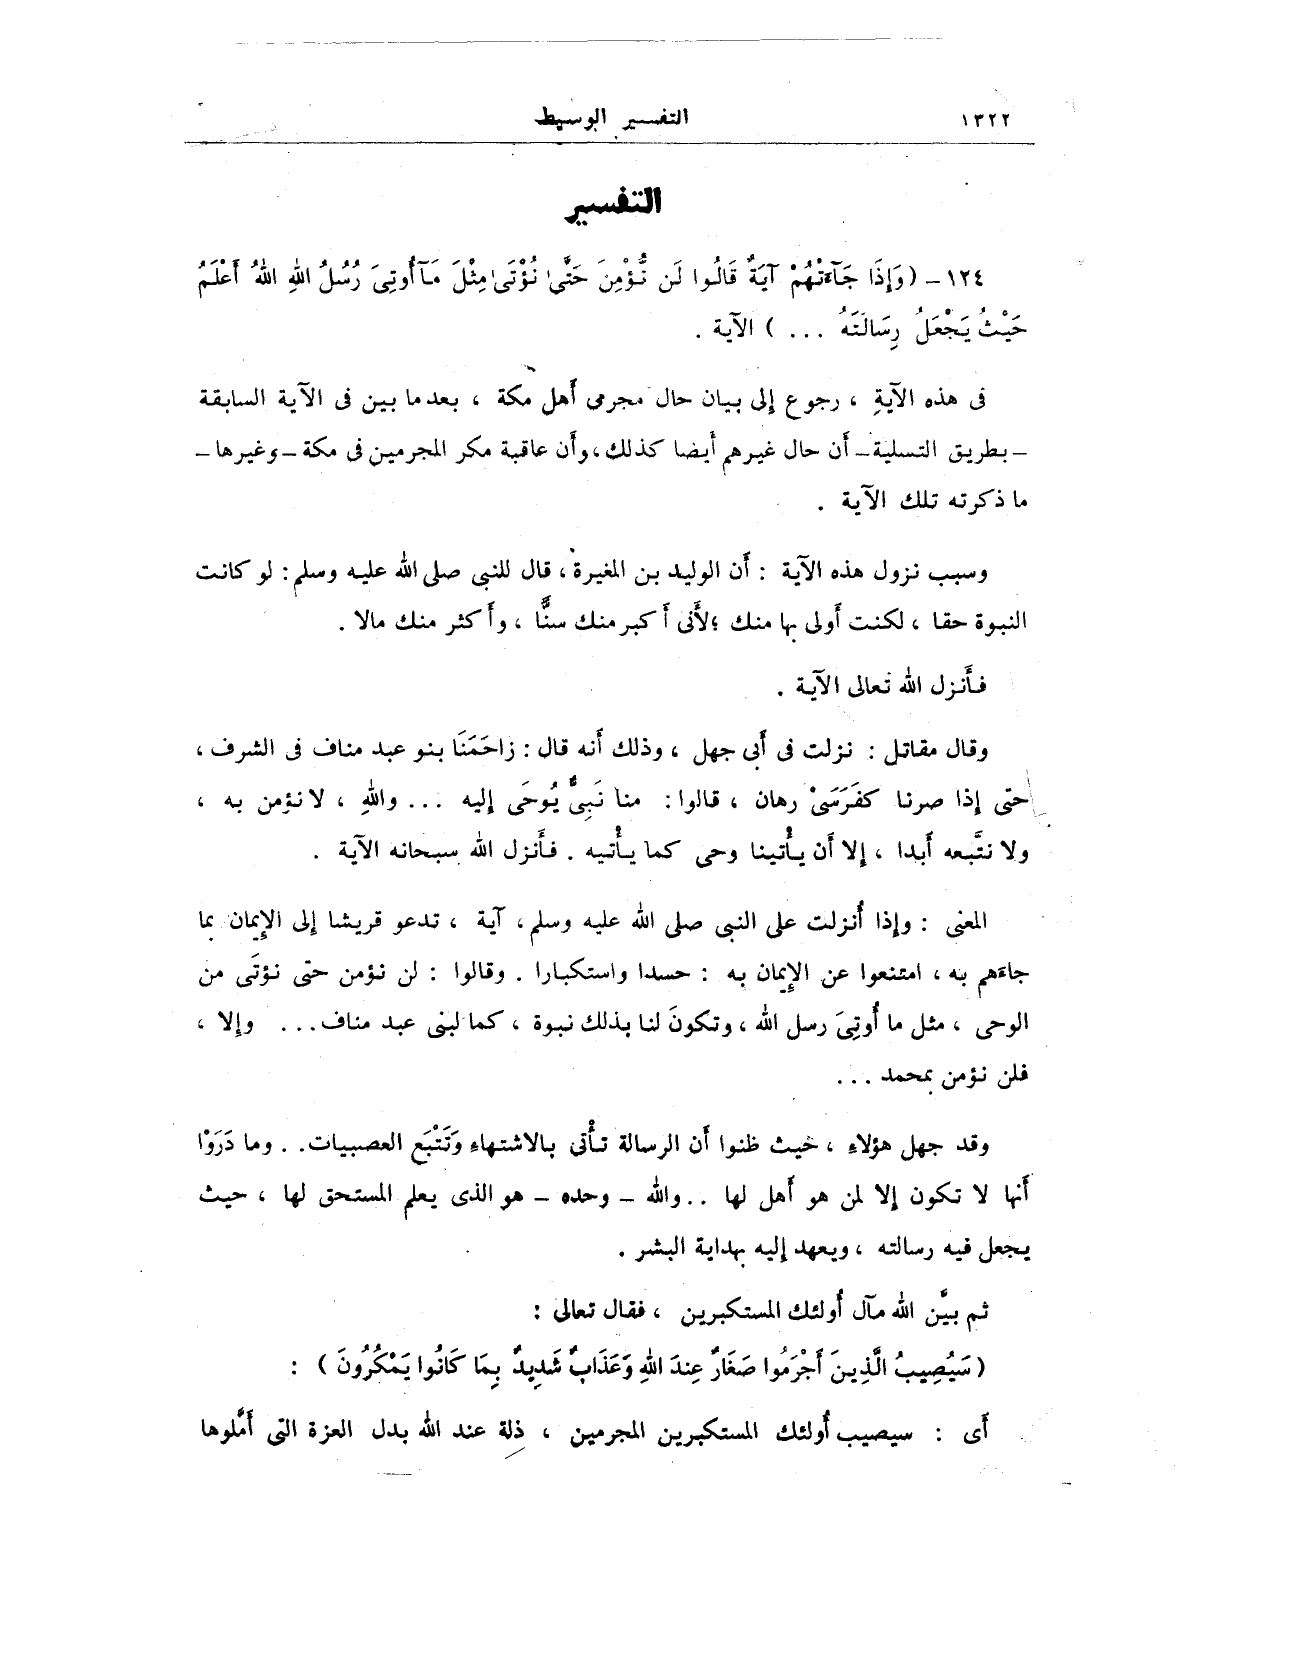 ١٣٢٢ التفسير الوسيط
التفسير
١٢٤ - (وَإِذَا جَآءَتْهُمْ آيَةٌ قَالُوا لَن نُّؤْمِنَ حَتَّىٰ نُؤْتَىٰ مِثْلَ مَآ أُوتِيَ رُسُلُ اللهِ اللهُ أَعْلَمُ
حَيْثُ يَجْعَلُ رِسَالَتَهُ ... ) الآية .
فى هذه الآية ، رجوع إلى بيان حال مجرمى أهل مكة ، بعدما بين فى الآية السابقة
- بطريق التسلية - أن حال غيرهم أيضا كذلك ، وأن عاقبة مكر المجرمين فى مكة - وغيرها -
ما ذكرته تلك الآية .
وسبب نزول هذه الآية : أن الوليد بن المغيرة ، قال للنبى صلى الله عليه وسلم : لو كانت
النبوة حقا ، لكنت أولى بها منك ؛ لأنى أكبر منك سنًّا ، وأكثر منك مالا .
فأنزل الله تعالى الآية .
وقال مقاتل : نزلت فى أبى جهل ، وذلك أنه قال : زاحَمَنَا بنو عبد مناف فى الشرف ،
حتى إذا صرنا كفَرَسَىْ رهان ، قالوا : منا نَبِىٌّ يُوحَى إليه ... واللهِ ، لا نؤمن به ،
ولا نتَّبعه أبدا ، إلا أن يأْتينا وحى كما يأْتيه . فأَنزل الله سبحانه الآية .
المعنى : وإذا أُنزلت على النبى صلى الله عليه وسلم ، آية ، تدعو قريشا إلى الإيمان بما
جاءهم به ، امتنعوا عن الإيمان به : حسدا واستكبارا . وقالوا : لن نؤمن حتى نؤتَى من
الوحى ، مثل ما أُوتِىَ رسل الله ، وتكونَ لنا بذلك نبوة ، كما لبنى عبد مناف ... وإلا ،
فلن نؤمن بمحمد ...
وقد جهل هؤلاء ، حيث ظنوا أن الرسالة تأْتى بالاشتهاءِ وَتَتْبَع العصبيات . . وما دَرَوْا
أنها لا تكون إلا لمن هو أهل لها .. والله - وحده - هو الذى يعلم المستحق لها ، حيث
يجعل فيه رسالته ، ويعهد إليه بهداية البشر .
ثم بيَّن الله مآل أُولئك المستكبرين ، فقال تعالى :
(سَيُصِيبُ الَّذِينَ أَجْرَمُوا صَغَارٌ عِندَ اللهِ وَعَذَابٌ شَدِيدٌ بِمَا كَانُوا يَمْكُرُونَ ) :
أى : سيصيب أُولئك المستكبرين المجرمين ، ذلة عند الله بدل العزة التى أَمَّلوها